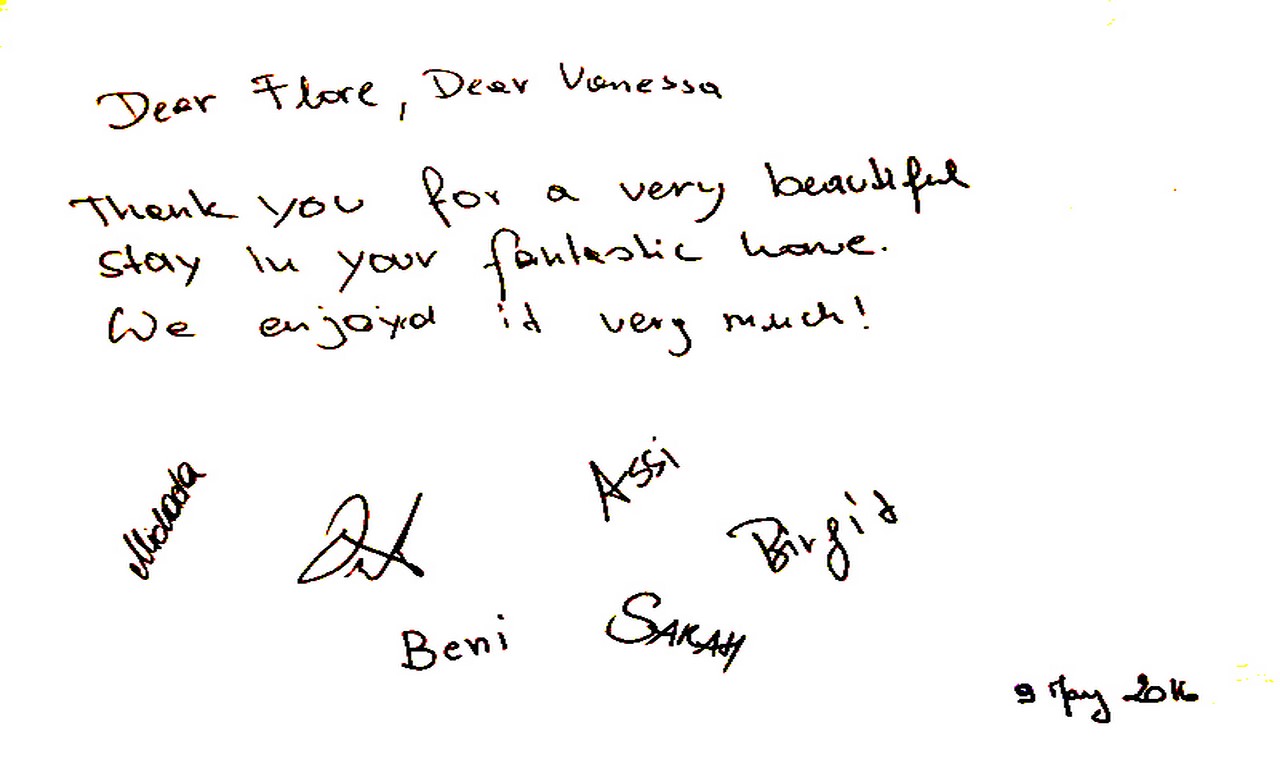 Dear Flore, Dear Vanessa
Thank you for a very beautiful
stay in your fantastic home.
We enjoyed it very much!
Assi
Birgit
Beni
SARAH
9 May 2016